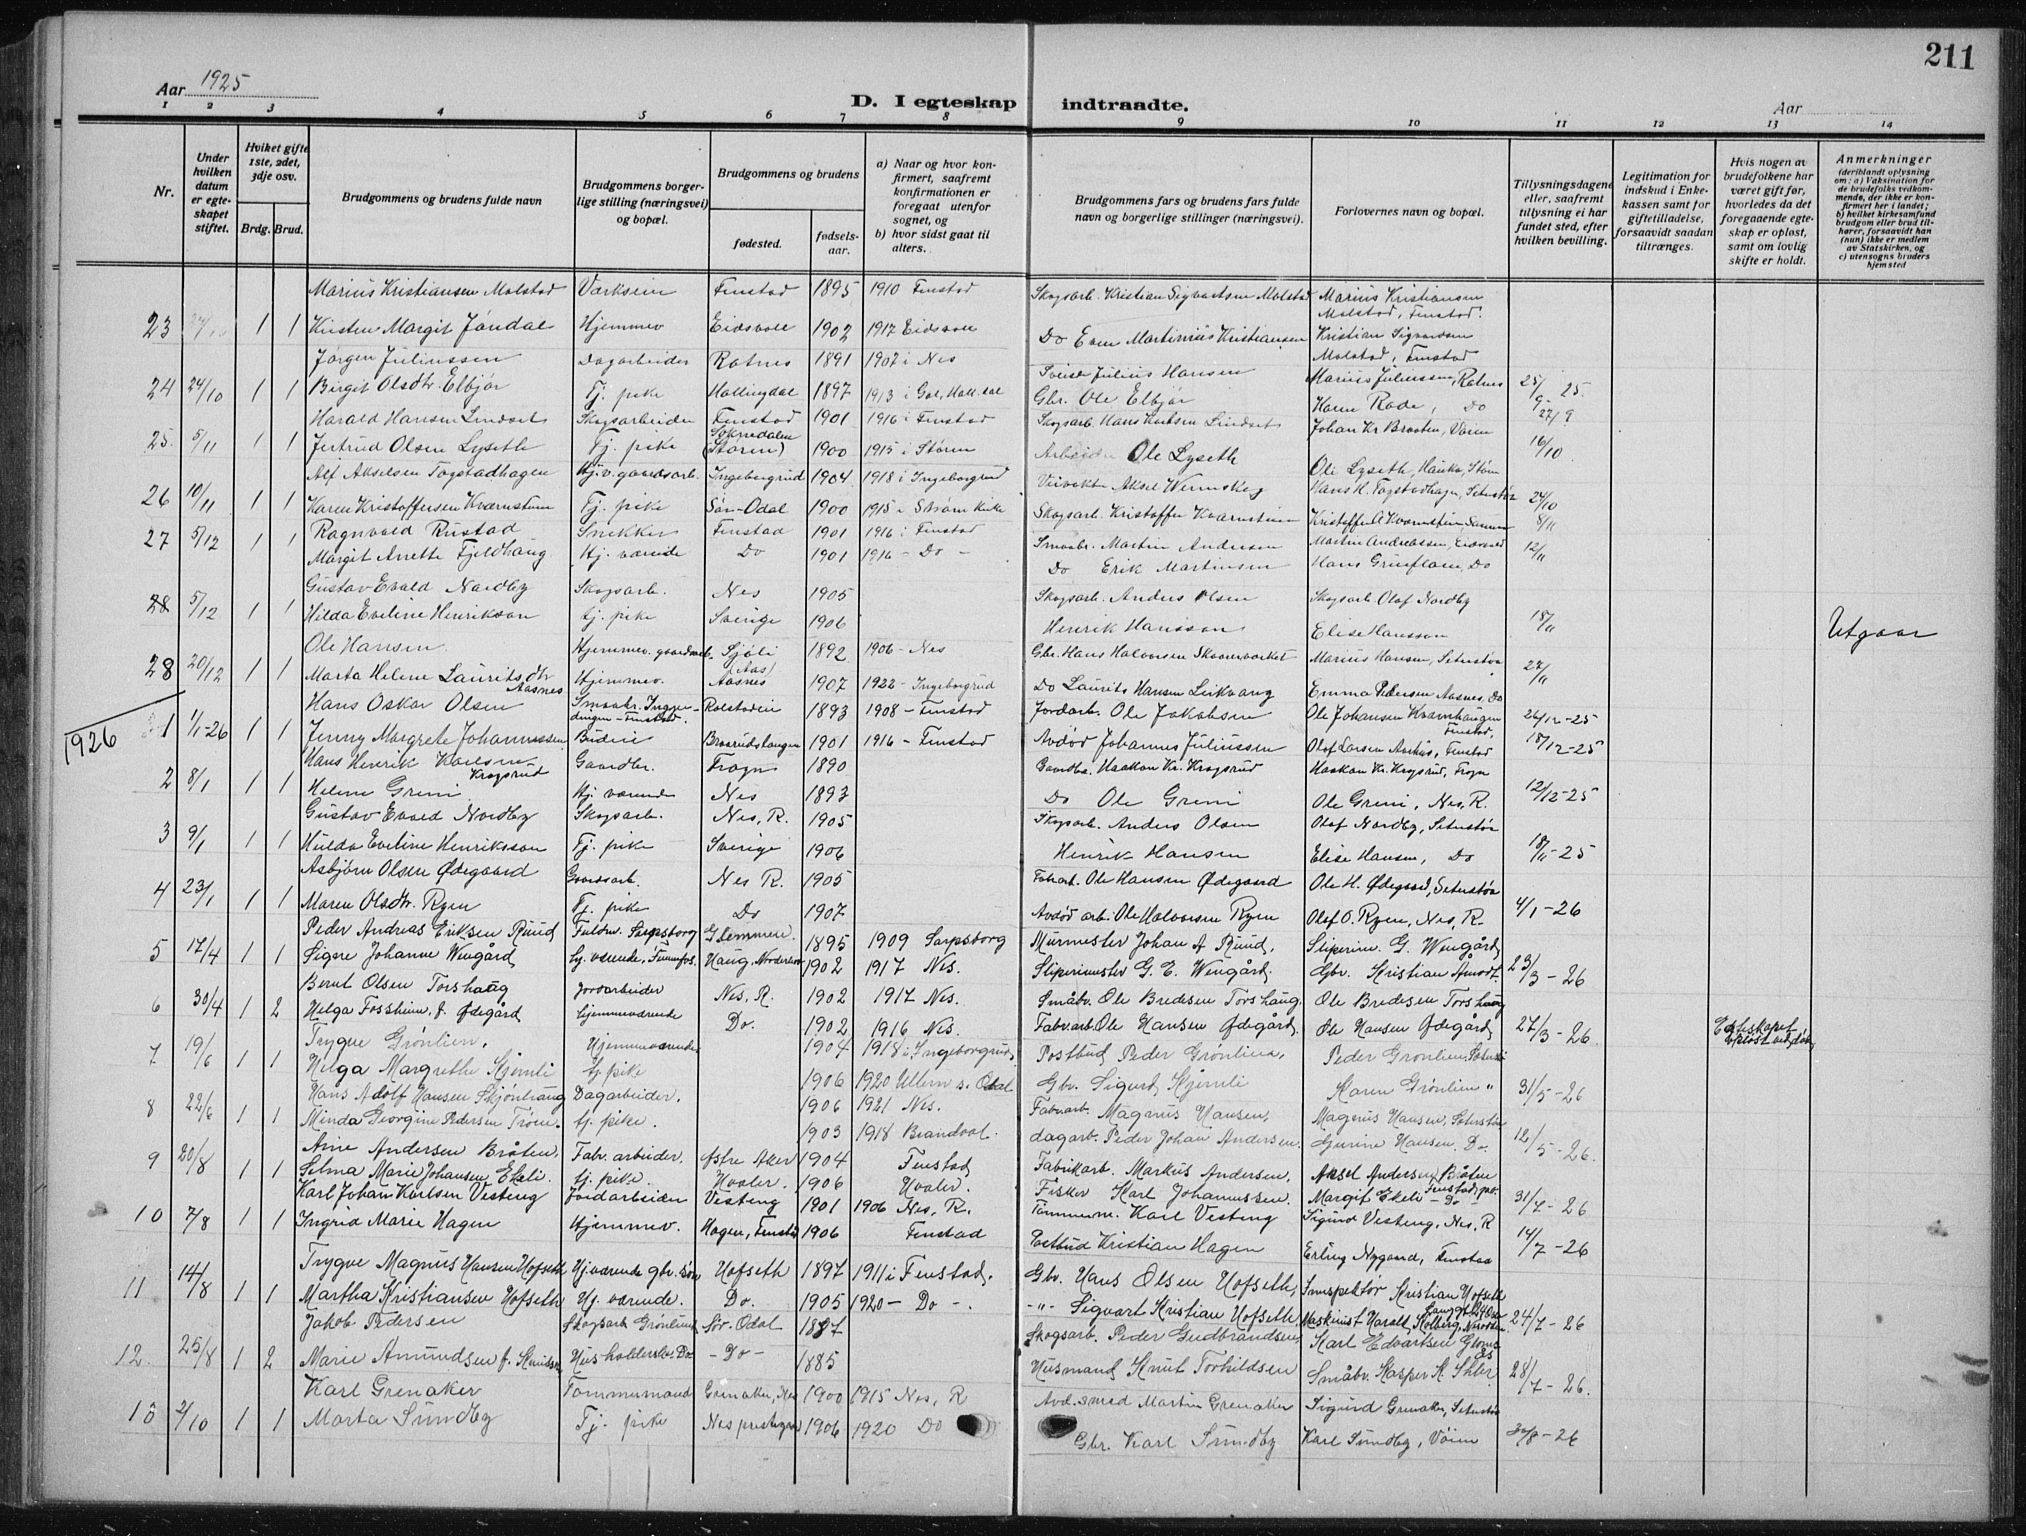 211
Aar 1925
D. I egteskap indtraadte.
Aar
1 2 3 4 5 6 7 8 9 10 11 12 13 14
Nr.
Under hvilken datum er egteskapet stiftet.
Hviket gifte 1ste, 2det, 3dje osv.
Brdg. Brud.
Brudgommens og brudens fulde navn
Brudgommens borgerlige stilling (næringsvei) og bopæl.
Brudgommens og brudens
fødested.
fødselsaar.
a) Naar og hvor konfirmert, saafremt konfirmationen er foregaat utenfor sognet, og
b) hvor sidst gaat til alters.
Brudgommens fars og brudens fars fulde navn og borgerlige stillinger (næringsvei).
Forlovernes navn og bopæl.
Tillysningsdagene eller, saafremt tillysning ei har fundet sted, efter hvilken bevilling.
Legitimation for indskud i Enkekassen samt for giftetilladelse, forsaavidt saadan tiltrænges.
Hvis nogen av brudefolkene har været gift før, hvorledes da det foregaaende egteskap er opløst, samt om lovlig skifte er holdt.
Anmerkninger (deriblandt oplysning om: a) Vaksination for de brudefolks vedkommende, der ikke er konfirmert her i landet; b) hvilket kirkesamfund brudgom eller brud tilhører, forsaavidt han (hun) ikke er medlem av Statskirken, og c) utensogns bruders hjemsted
Marius Kristiansen Molstad Værkseier Fenstad 1895 1910 Fenstad Skogsarb. Kristian Sigvartsen Molstad Marius Kristiansen Molstad, Fenstad.
23 1 1 Kirsten Margit Jøndal Hjemmev Eidsvoll 1902 1917 Eidsvoll Do Even Martinius Kristiansen Kristian Sigvardsen Molstad, Fenstad
Jørgen Juliussen Dagarbeider Rotnes 1891 1907 i Nes Julius Hansen Marius Juliussen, Rotnes
24 24/10 1 1 Birgit Olsdtr. Elbjør Tj. pike Hallingdal 1897 1913 i Gol, Hall.dal Gbr. Ole Elbjør Do 25/9 - 25.
Harald Hansen Lindset Skogsarbeider Fenstad 1901 1916 i Fenstad Skogsarb. Hans Karlsen Lindset Johan Kr Braaten, Vårn 27/9
25. 5/11 1 1 Jertrud Olsen Lyseth Tj. pike Soknedalen (Støren) 1900 1915 i Støren Arbeider Ole Lyseth Ole Lyseth, Hauka, Støren 16/10
Alf Akselsen Togstadhagen Hj.v. gaardsarb. Ingeborgrud 1904 1918 i Ingeborgrud Veivokter Aksel Wermskog Hans H. Togstadhagen, Seterstøa
26 10/11 1 1 Karen Kristoffersen Kvernstuen Tj. pike Sør-Odal 1900 1915 i Strøm kirke Skogsarb. Kristoffer Kvernstuen Kristoffer A Kvernstuen, 24/10 8/11
27 5/12 1 1 Ragnvald Rustad Snekker Fenstad 1901 1916 i Fenstad Smaabr. Martin Andersen Martin Andreassen, Eidsvold
Margit Anette Fjeldhaug Hj. værende Do 1901 1916 - Do - Do Erik Martinsen Hans Grinflaen, Do 12/11
Gustav Evald Nordby Skogsarb. Nes 1905 Skogsarb. Anders Olsen Skogsarb Olaf Nordby
28 5/12 1 1 Hilda Eveline Henrikson tj. pike Sverige 1906 Henrik Hansson Elise Hansson 18/11 Utgaar
Ole Hansen Hjemmev. gaardsarb. Sjøli (Aas) 1892 1906 - Nes Gbr. Hans Halvorsen Skaarerværket Marius Hansen, Seterstøa
28 20/12 1 1 Marta Helene Lauritsdtr Aasnes Hjemmev. Aasnes 1907 1922 - Ingeborgrud Do Laurits Hansen Leikvang Emma Pedersen Aasnes, Do 27/11
1926
Hans Oskar Olsen Smaabr. Ingvendingen - Fenstad. Rolstadeie 1893 1908 - Fenstad Jordarb. Ole Jakobsen Ole Johansen Kvernhaugen Fenstad, 26/12 - 25
1 1/1-26 1 1 Jenny Margrete Johannessen Budeie Braarudshaugen 1901 1916 - Fenstad Avdød Johannes Juliussen Olaf Larsen Aarhus, Fenstad 18/12 - 25
Hans Henrik Karlsen Krogsrud Gaardbr. Frogn 1890 Gaardbr. Haakon Kr. Krogsrud Haakon Kr. Krogsrud, Frogn
2 8/1 1 1 Helene Greni Hj. værende Nes 1893 Do Ole Greni Ole Greni, Nes, R. 12/12-25
Gustav Evald Nordby Skogsarb. Nes, R. 1905 Skogsarb. Anders Olsen Olaf Nordby, Seterstøa
3 9/1 1 1 Hulda Eveline Henriksson Tj. pike Sverige 1906 Henrik Hansen Elise Hansen, Do 18/11 - 25
Asbjørn Olsen Ødegaard Gaardsarb. Nes R. 1905 Fabrarb. Ole Hansen Ødegaard Ole H. Ødegaard, Seterstøa
4 23/1 1 1 Maren Olsdtr. Ryen Tj. pike Do 1907 Avdød arb. Ole Halvorsen Ryen Olaf O. Ryen, Nes, R. 4/1 - 26
Peder Andreas Eriksen Ruud Fuldm. Sarpsborg Glemmen. 1895 1909 Sarpsborg Murmester Johan A Ruud, Sliperim. G. Wengård
5 17/4 1 1 Sigre Johanne Wengård hj. værende, Funnefos. Haug, Norderhov 1902 1917 Nes. Sliperimester G. E. Wengård. Gbr. Kristian Åmodt. 23/3 - 26
Bernt Olsen Torshaug Jordarbeider Nes, R. 1902 1917 Nes. Småbr. Ole Bredesen Torshaug, Ole Bredesen Torshaug
6 30/4 1 2 Helga Fossheim, f. Ødegård hjemmeværende Do. 1902 1916 Nes. Fabr.arb. Ole Hansen Ødegård, Ole Hansen Ødegård, 27/3 - 26. Ekteskapet opløst ved død
Trygve Grønlien. Hjemmeværende 1904 1918 i Ingeborgrud Postbud Peder Grønlien, Peder Grønlien, Seterstøa
7 19/6 1 1 Helga Margrethe Kjernli tj. pike 1906 1920 Ullern s. Odal Gbr. Sigurd Kjernli Karen Grønlien " 31/5 - 26
Hans Adolf Hansen Skjønhaug Dagarbeider. 1906 1921 Nes. Fabr.arb. Magnus Hansen, Magnus Hansen, Seterstøa
8 22/6 1 1 Minda Georgine Pedersen Trøen. tj. pike. 1903 1918 Brandval. dagarb. Peder Johan Andersen. Gurine Hansen. Do. 12/5 - 26.
Arne Andersen Bråten. Fabr. arbeider. østre Aker 1904 Fenstad Fabrikarb. Markus Andersen, Aksel Andersen Bråten Fenstad,
9 20/8 1 1 Selma Marie Johansen Ekeli. tj. pike. Hvaler. 1906 Hvaler. Fisker Karl Johannessen. Margit Ekeli - Do - 31/7 - 26
Karl Johan Karlsen Vesteng Jordarbeider Vesteng 1901 1906 Nes, R. Tømmerm. Karl Vesteng Sigurd Vesteng, Nes, R
10 7/8 1 1 Ingrid Marie Hagen Hjemmev. Hagen, Fenstad 1906 Fenstad Postbud Kristian Hagen Erling Nygaard, Fenstad 14/7 - 26
Trygve Magnus Hansen Hofseth Hj.værende gbr. søn Hofseth 1897 1911 i Fenstad. Gbr. Hans Olsen Hofseth, Innspektør Kristian Hofseth
11 14/8 1 1 Martha Kristiansen Hofseth Hj. værende. Do. 1905 1920 - Do -. -"- Sigvart Kristian Hofseth Maskinist Harald Kolberg, 24/7 - 26
Jakob Pedersen Skogsarb Grønlund Sør-Odal 1887 Skogsarb. Peder Gudbrandsen, Karl Edvartsen
12. 25/8 1 2 Marie Amundsen f. Knutsen Husholderske, Do - Do - 1885 Husmand Knut Torkildsen Småbr. Kasper K. 28/7 - 26.
Karl Grenaker Tømmermand Grenaker, Nes 1900 1915 Nes, R Avd. smed Martin Grenaker Sigurd Grenaker, Seterstøa
13 2/10 1 1 Marta Sundby Tj. pike Nes prestegjeld 1906 1920 Do Gbr. Karl Sundby Karl Sundby, Vårn 30/8 - 26